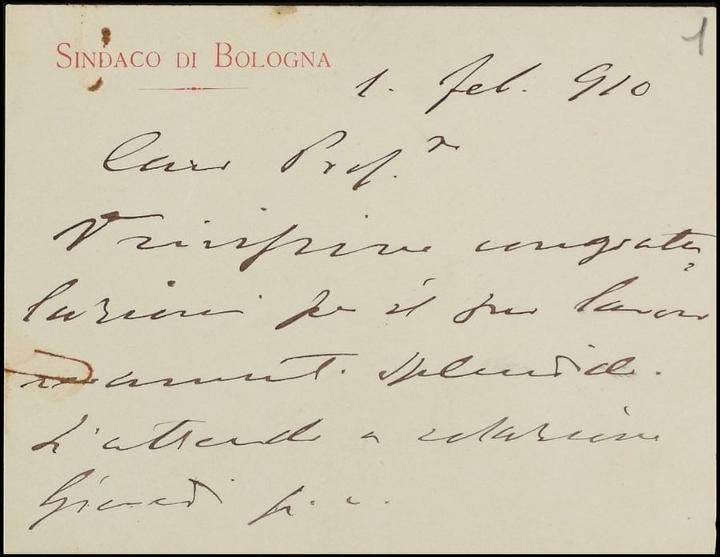 1
SINDACO DI BOLOGNA
1. Feb. 910
Caro Prof.r
Vivissime congratu
lazioni per il suo lavoro
veramente splendido.
L'attendo a colazione
Giovedì p. v.